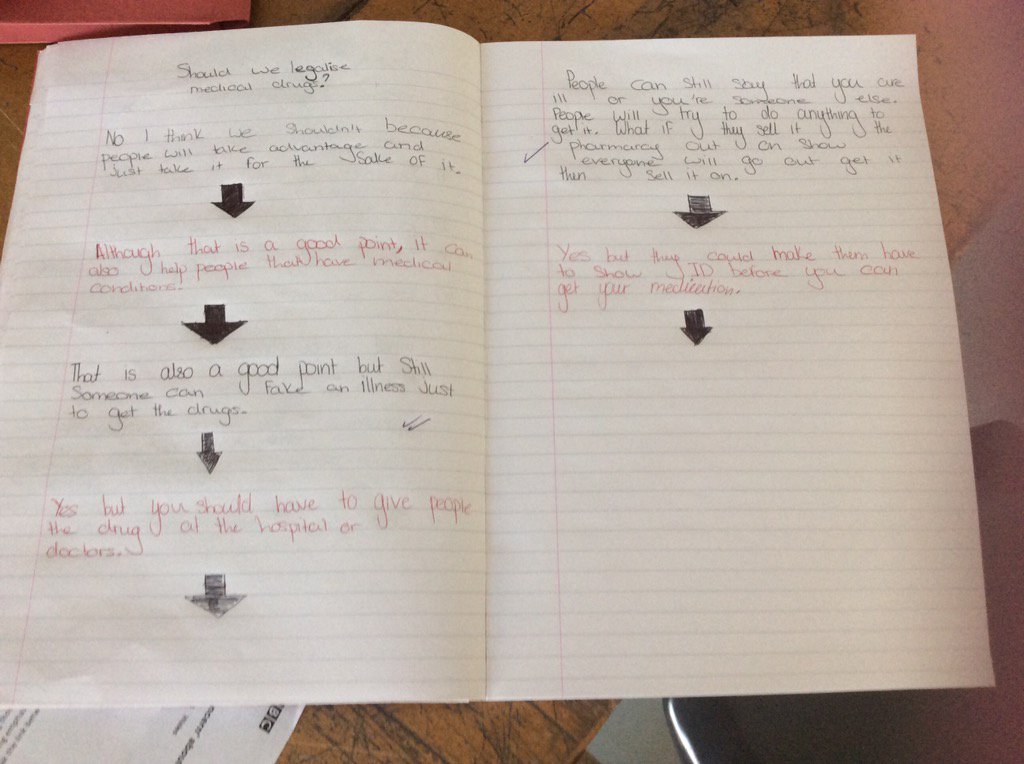 Should we legalise
medical drugs?
No I think we shouldn't because
people will take advantage and
Just take it for the sake of it.
Although that is a good point, it can
also help people that have medical
conditions.
That is also a good point but Still
Someone can fake an illness Just
to get the drugs.
Yes but you should have to give people
the drug at the hospital or
doctors.
People can still say that you are
ill or you're someone else.
People will try to do anything to
get it. What if they sell it y the
pharmarcy out on show
everyone will go out get it
then sell it on.
Yes but they could make them have
to show ID before you can
get your medication.
BBC